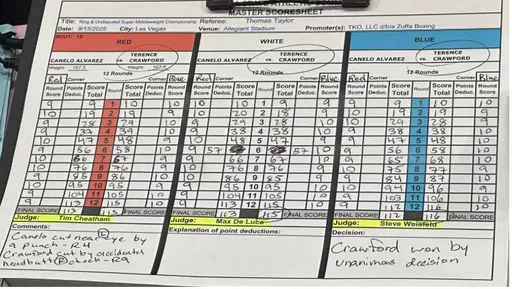 MASTER SCORESHEET
Title: Ring & Undisputed Super Middleweight Championship Referee: Thomas Taylor
Date: 9/13/2025 City: Las Vegas Venue: Allegiant Stadium Promoter(s): TKO, LLC d/b/a Zuffa Boxing
RED WHITE BLUE
CANELO ALVAREZ vs. TERENCE CRAWFORD CANELO ALVAREZ vs. TERENCE CRAWFORD CANELO ALVAREZ vs. TERENCE CRAWFORD
12 Rounds 12 Rounds 12 Rounds
Red Corner Corner Blue Red Corner Corner Blue Red Corner Corner Blue
Round Score Points Deduc. Score Total Round Score Total Points Deduc. Round Score Round Score Points Deduc. Score Total Round Score Total Points Deduc. Round Score Round Score Points Deduc. Score Total Round Score Total Points Deduc. Round Score
9 9 1 10 10 10 10 1 9 9 9 9 1 10 10
10 19 2 19 9 10 20 2 18 9 10 19 2 19 9
9 28 3 29 10 9 29 3 28 10 10 29 3 28 9
9 37 4 39 10 9 38 4 38 10 9 38 4 38 10
10 47 5 48 9 10 48 5 47 9 9 47 5 48 10
9 56 6 58 10 9 57 6 57 10 9 56 6 58 10
10 66 7 67 9 9 66 7 67 10 9 65 7 68 10
10 76 8 76 9 10 76 8 76 9 10 75 8 77 9
9 85 9 86 10 10 86 9 85 9 9 84 9 87 10
10 95 10 95 9 9 95 10 95 10 10 94 10 96 9
9 104 11 105 10 9 104 11 105 10 9 103 11 106 10
9 113 12 115 10 9 113 12 115 10 9 112 12 116 10
FINAL SCORE 113 115 FINAL SCORE FINAL SCORE 113 115 FINAL SCORE FINAL SCORE 112 116 FINAL SCORE
Judge: Tim Cheatham Judge: Max De Luca Judge: Steve Weisfeld
Comments: Explanation of point deductions: Decision:
Canelo cut near L eye by
a punch - R4
Crawford cut by accidental
headbutt R cheek - R9
Crawford won by
unanimous decision